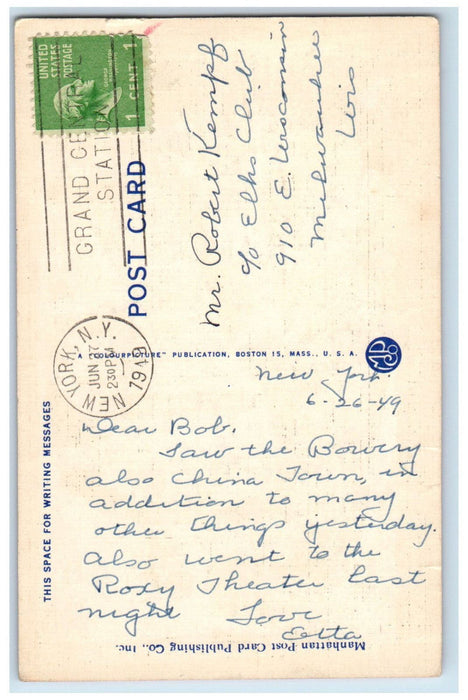 UNITED
STATES
POSTAGE
GEORGE WASHINGTON
1 CENT 1
GRAND CE
STATION
NEW YORK, N.Y.
JUN 27
230 PM
1949
POST CARD
Mr. Robert Kempf
c/o Elks Club
910 E. Wisconsin
Milwaukee
Wis
A "COLOURPICTURE" PUBLICATION, BOSTON 15, MASS., U. S. A.
THIS SPACE FOR WRITING MESSAGES
New York.
6-26-49
Dear Bob.
Saw the Bowery
also China Town, in
addition to many
other things yesterday.
Also went to the
Roxy Theater last
night Love
Etta
Manhattan Post Card Publishing Co., Inc.